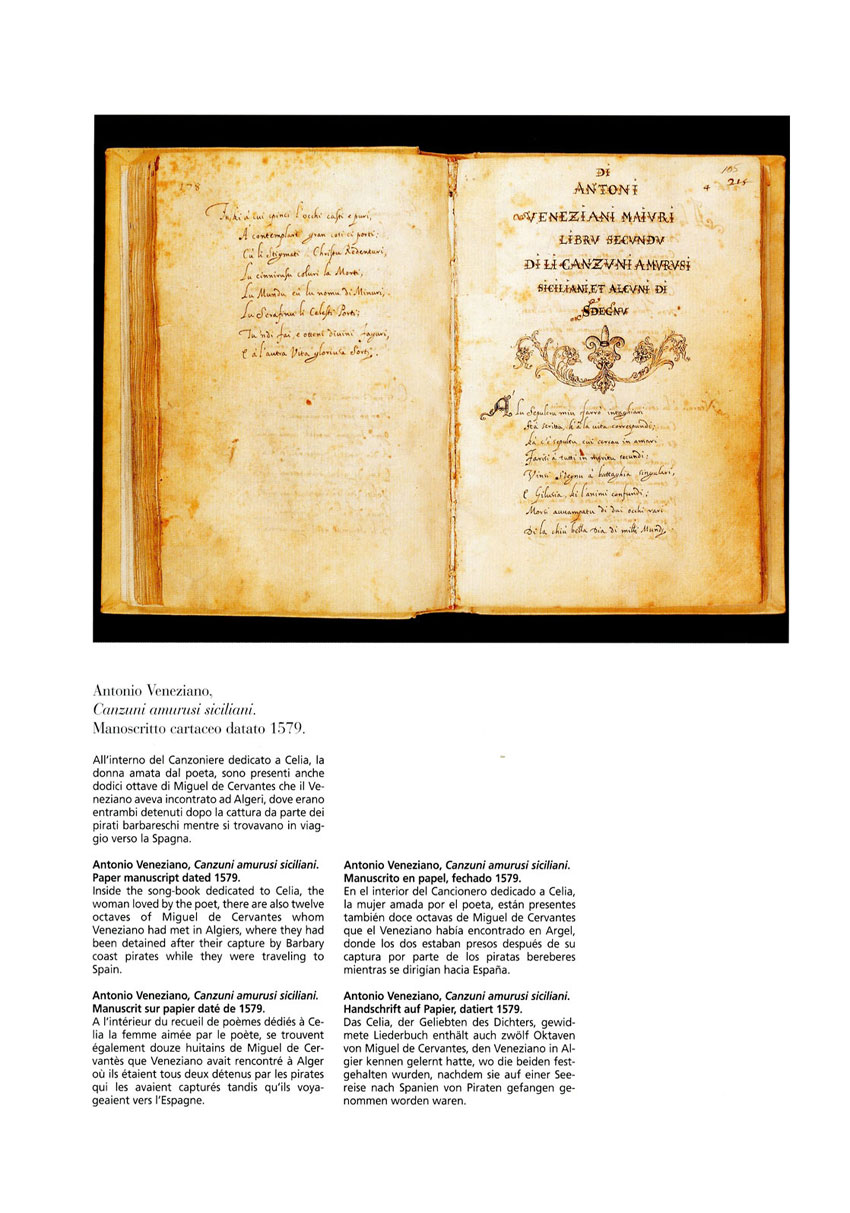 178
Tu ki à lui spinci l'occhi casti e puri,
A contemplari gran cosi ci porti;
Cu li Stigmati Christu Redenturi,
La cinnirusu coluri la Morti,
Lu Mundu cu lu nomu di Minuri,
Lu Serafinu li Celesti Porti;
Tu ndi fai, e otteni divini favuri,
E à l'autra Vita gloriusa Sorti.
4
DI
ANTONI
VENEZIANI MAIURI
LIBRU SECUNDU
DI LI CANZUNI AMURUSI
SICILIANI, ET ALCUNI DI
SDEGNU
A Lu Sepulcru miu farrò intaghiari
à la vita correspundi;
sepultu cui in amari
à tutti in secundi;
Vinsi Sdegnu à battaghia singulari,
E Gilusia, chi l'animi confundi;
Morsi di dui occhi rari
Di la chiù bella Dia di milli Mundi.
Antonio Veneziano,
Canzuni amurusi siciliani.
Manoscritto cartaceo datato 1579.
All'interno del Canzoniere dedicato a Celia, la
donna amata dal poeta, sono presenti anche
dodici ottave di Miguel de Cervantes che il Ve-
neziano aveva incontrato ad Algeri, dove erano
entrambi detenuti dopo la cattura da parte dei
pirati barbareschi mentre si trovavano in viag-
gio verso la Spagna.
Antonio Veneziano, Canzuni amurusi siciliani.
Paper manuscript dated 1579.
Inside the song-book dedicated to Celia, the
woman loved by the poet, there are also twelve
octaves of Miguel de Cervantes whom
Veneziano had met in Algiers, where they had
been detained after their capture by Barbary
coast pirates while they were traveling to
Spain.
Antonio Veneziano, Canzuni amurusi siciliani.
Manuscrit sur papier daté de 1579.
A l'intérieur du recueil de poèmes dédiés à Ce-
lia la femme aimée par le poète, se trouvent
également douze huitains de Miguel de Cer-
vantès que Veneziano avait rencontré à Alger
où ils étaient tous deux détenus par les pirates
qui les avaient capturés tandis qu'ils voya-
geaient vers l'Espagne.
Antonio Veneziano, Canzuni amurusi siciliani.
Manuscrito en papel, fechado 1579.
En el interior del Cancionero dedicado a Celia,
la mujer amada por el poeta, están presentes
también doce octavas de Miguel de Cervantes
que el Veneziano había encontrado en Argel,
donde los dos estaban presos después de su
captura por parte de los piratas bereberes
mientras se dirigían hacia España.
Antonio Veneziano, Canzuni amurusi siciliani.
Handschrift auf Papier, datiert 1579.
Das Celia, der Geliebten des Dichters, gewid-
mete Liederbuch enthält auch zwölf Oktaven
von Miguel de Cervantes, den Veneziano in Al-
gier kennen gelernt hatte, wo die beiden fest-
gehalten wurden, nachdem sie auf einer See-
reise nach Spanien von Piraten gefangen ge-
nommen worden waren.